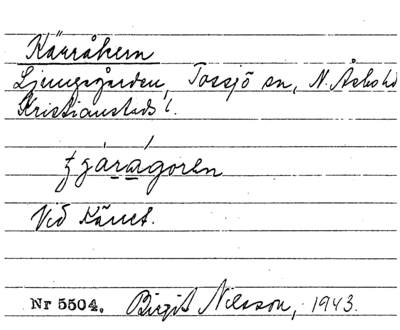 Kärråkern
Ljungsgården, Tossjö sn, N. Åsbo hd
Kristianstads l.
Vid Kärret.
Nr 5504. Birgit Nilsson, 1943.